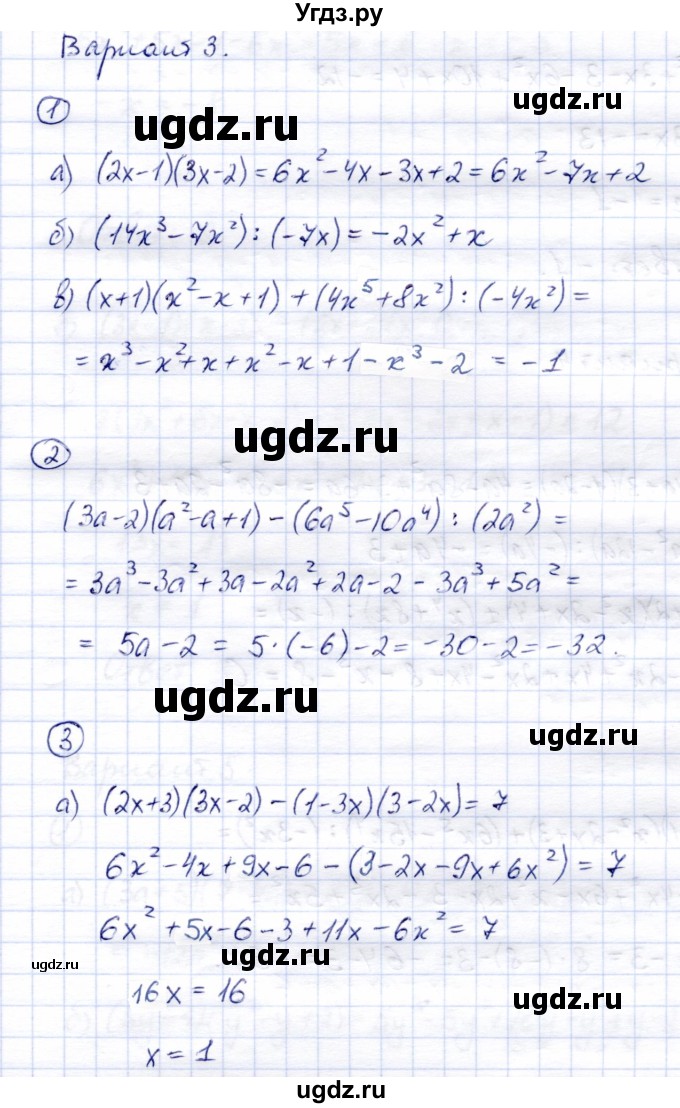 Угдз.ру
Вариант 3.
1
ugdz.ru
ugdz.ru
а) (2x-1)(3x-2)=6x²-4x-3x+2=6x²-7x+2
б) (14x³-7x²):(-7x)=-2x²+x
в) (x+1)(x²-x+1)+(4x⁵+8x²):(-4x²)=
=x³-x²+x+x²-x+1-x³-2=-1
ugdz.ru
2
(3a-2)(a²-a+1)-(6a⁵-10a⁴):(2a²)=
=3a³-3a²+3a-2a²+2a-2-3a³+5a²=
= 5a-2 = 5·(-6)-2=-30-2=-32.
ugdz.ru
3
ugdz.ru
а) (2x+3)(3x-2)-(1-3x)(3-2x)=7
6x²-4x+9x-6-(3-2x-9x+6x²)=7
6x²+5x-6-3+11x-6x²=7
ugdz.ru
16x=16
ugdz.ru
x=1
ugdz.ru